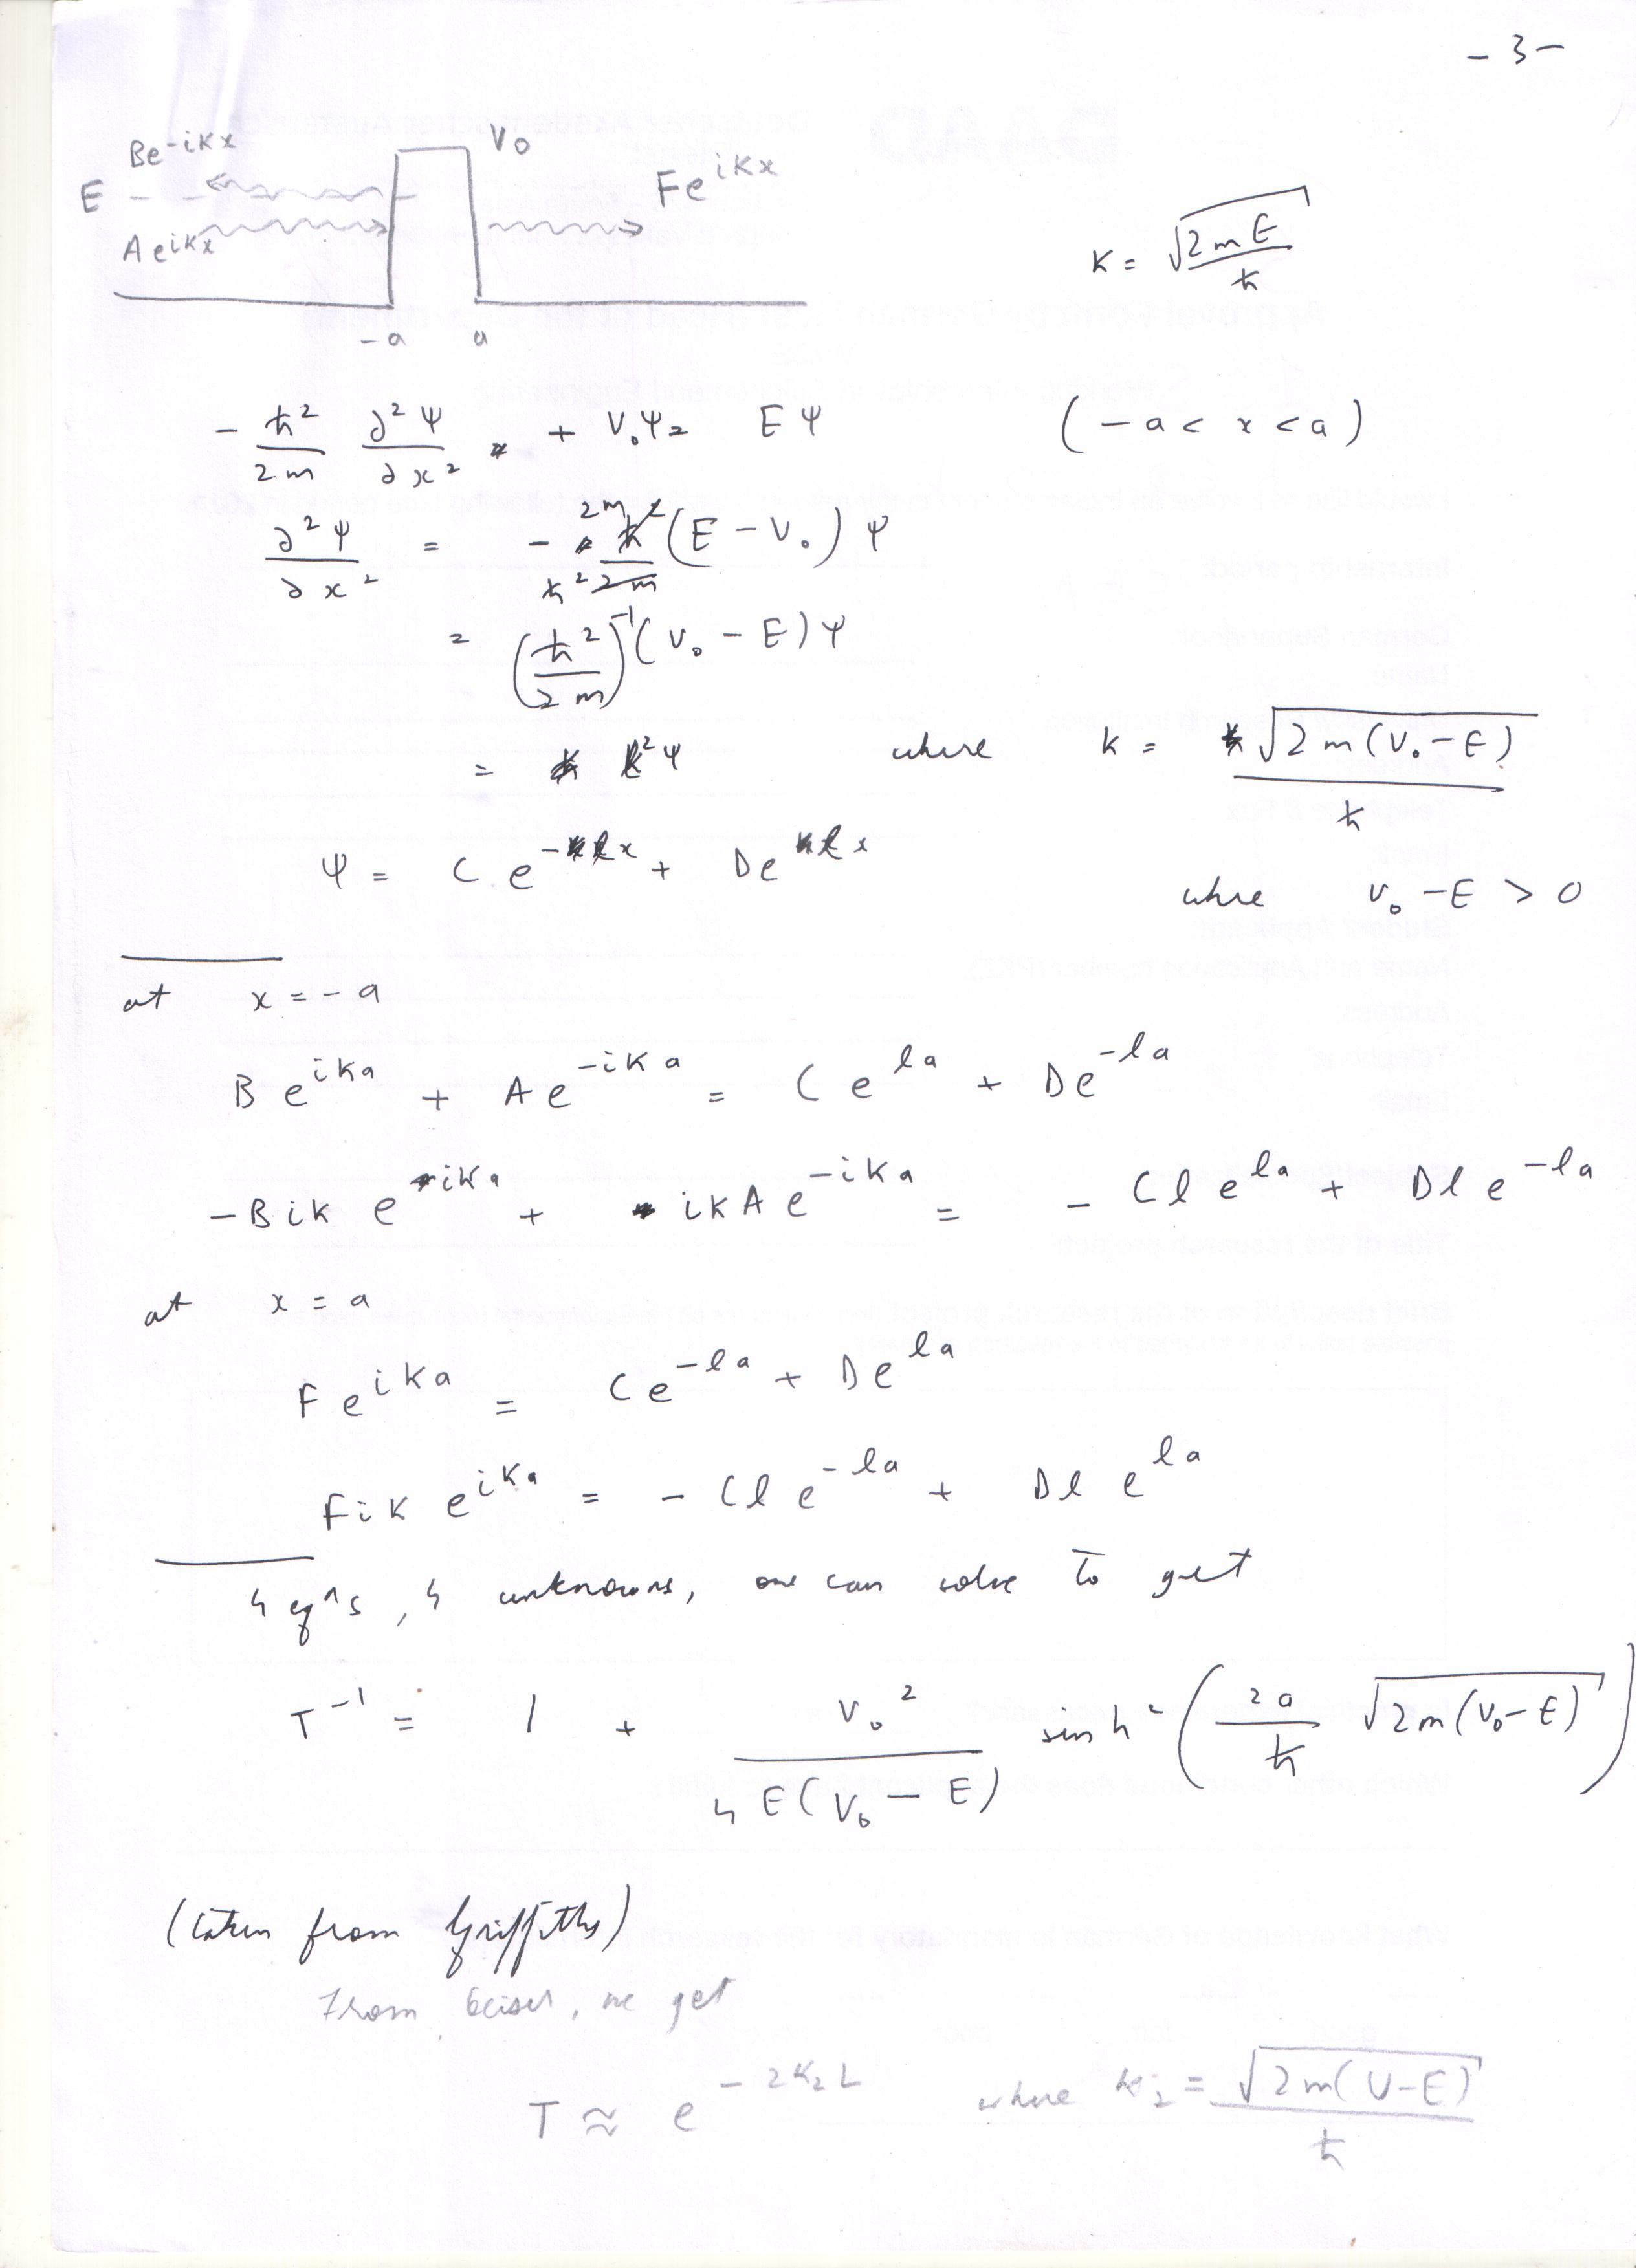 - 3 -
Be^{-ikx}
V₀
E
Fe^{ikx}
Ae^{ikx}
k = √(2mE)/ħ
-a a
- ħ²/2m ∂²Ψ/∂x² + V₀Ψ = EΨ (-a < x < a)
∂²Ψ/∂x² = - 2m/ħ² (E - V₀)Ψ
= (ħ²/2m)^{-1} (V₀ - E)Ψ
= l²Ψ where k = √(2m(V₀-E))/ħ
Ψ = Ce^{-lx} + De^{lx}
whre V₀ - E > 0
at x = -a
Be^{ika} + Ae^{-ika} = Ce^{la} + De^{-la}
-Bik e^{ika} + ikAe^{-ika} = - Cl e^{la} + Dl e^{-la}
at x = a
Fe^{ika} = Ce^{-la} + De^{la}
Fik e^{ika} = - Cl e^{-la} + Dl e^{la}
4 eqⁿs, 4 unknowns, one can solve to get
T^{-1} = 1 + V₀²/4E(V₀ - E) sinh² (2a/ħ √(2m(V₀-E)))
(taken from Griffiths)
From Beiser, we get
T ≈ e^{-2k₂L} where k₂ = √(2m(V-E))/ħ